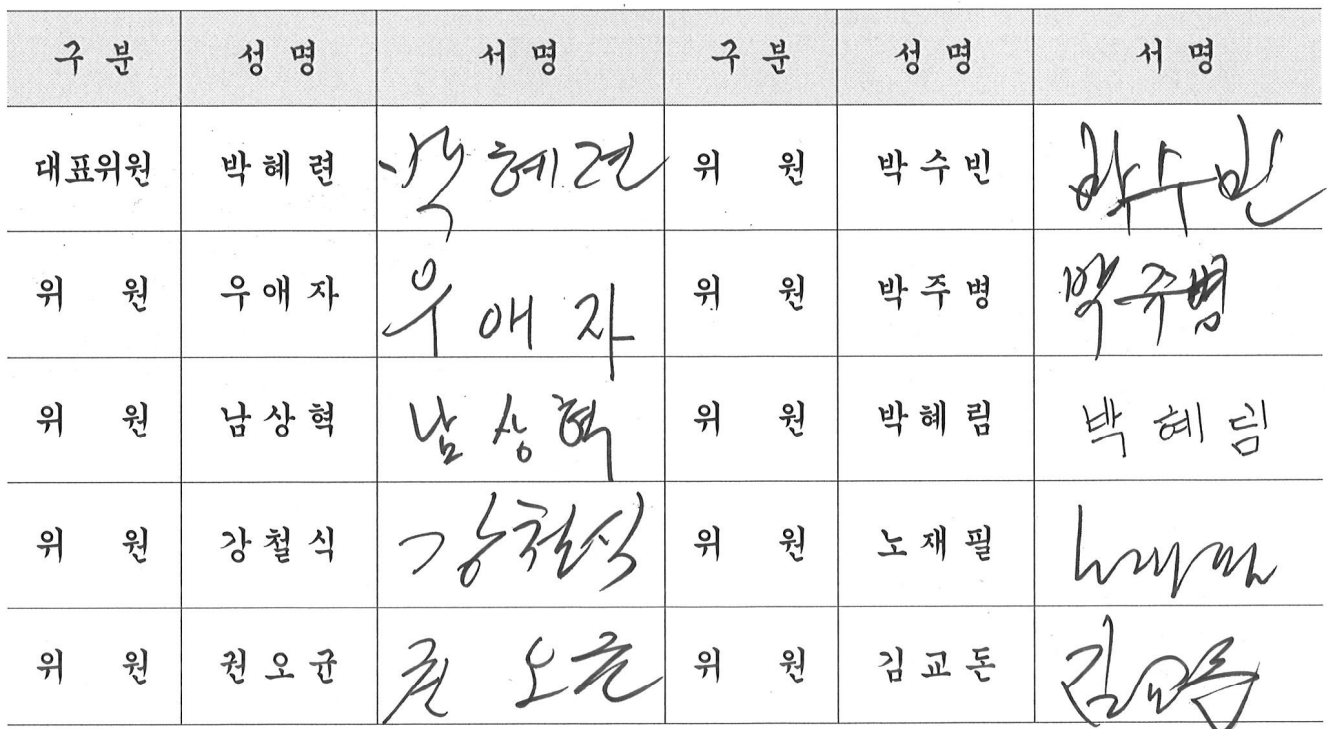 구 분 성 명 서 명 구 분 성 명 서 명
대표위원 박 혜 련 박 혜 련 위 원 박 수 빈 박수빈
위 원 우 애 자 우 애 자 위 원 박 주 병 박주병
위 원 남 상 혁 남 상 혁 위 원 박 혜 림 박 혜 림
위 원 강 철 식 강철식 위 원 노 재 필 노재필
위 원 권 오 균 권 오균 위 원 김 교 돈 김교돈